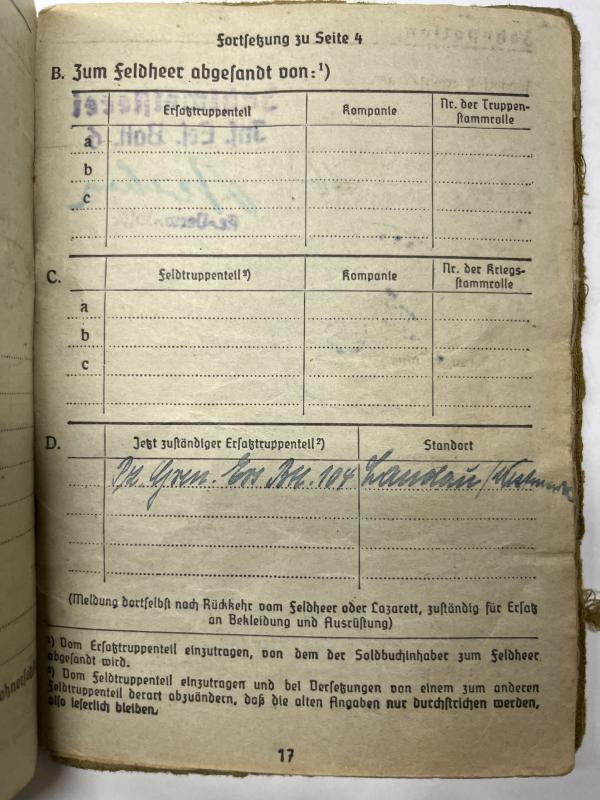 Fortsetzung zu Seite 4
B. Zum Feldheer abgesandt von:¹)
Ersatztruppenteil Kompanie Nr. der Truppen-
stammrolle
a
b
c
C. Feldtruppenteil²) Kompanie Nr. der Kriegs-
stammrolle
a
b
c
D. Jetzt zuständiger Ersatztruppenteil²) Standort
Pz. Gren. Ers. Btl. 104 Landau/Westmark
(Meldung dortselbst nach Rückkehr vom Feldheer oder Lazarett, zuständig für Ersatz
an Bekleidung und Ausrüstung)
¹) Vom Ersatztruppenteil einzutragen, von dem der Soldbuchinhaber zum Feldheer
abgesandt wird.
²) Vom Feldtruppenteil einzutragen und bei Versetzungen von einem zum anderen
Feldtruppenteil derart abzuändern, daß die alten Angaben nur durchstrichen werden,
also leserlich bleiben.
17